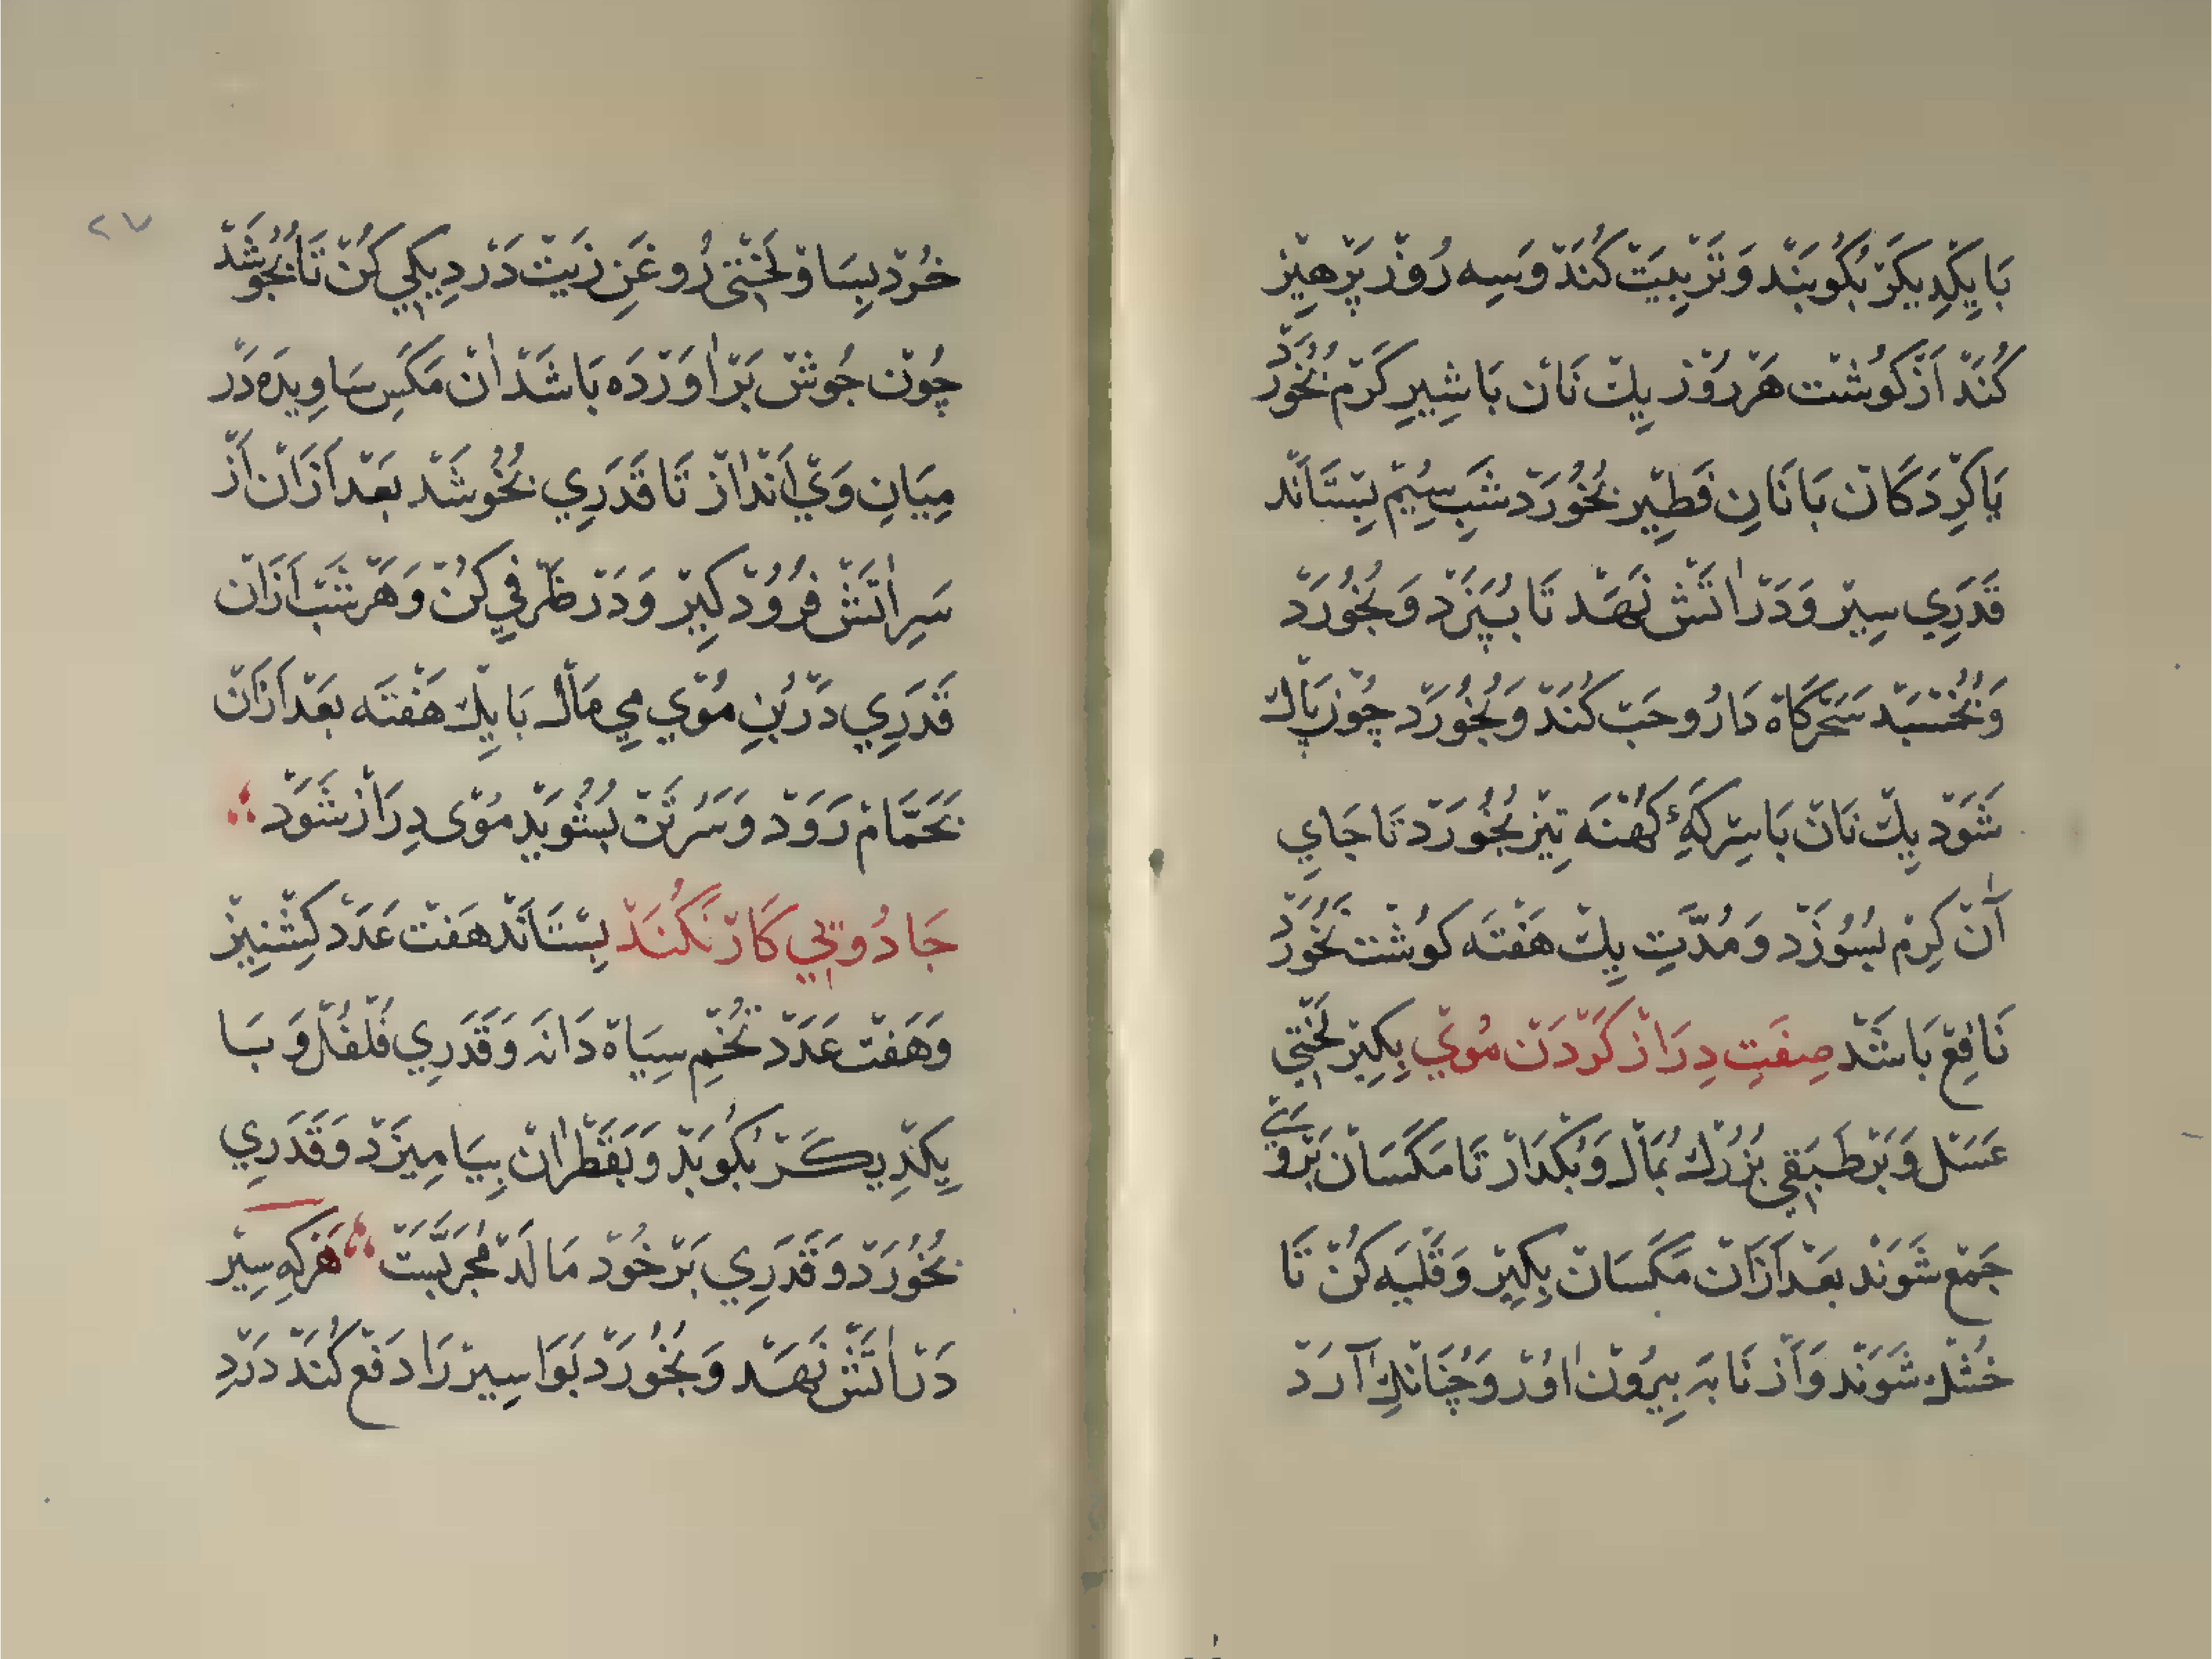 بَا يِكْدِيكَرْ بُكُوبَنْد وَتَرْبِيَتْ كُنَدْ وَسِه رُوزْ پَرْهِيْز
كُنَدْ اَزْ كُوشْت هَرْ رُوْز يِكْ نَان بَا شِيرِ كَرْم بُخُورَدْ
يَا كِرْدَكَانْ بَا نَانِ فَطِيْر بُخُورَدْ شَبِ سِيُمْ بِسْتَانَدْ
قَدَرِي سِيْر وَدَرْ اٰتَشْ نَهَدْ تَا بِپَزَدْ وَبُخُورَدْ
وَبُخُسْبَدْ سَحَرْكَاهْ دَارُو حَبْ كُنَدْ وَبُخُورَدْ چُوْن پَاكْ
شَوَدْ يِكْ نَانْ بَا سِرْكَهِٔ كُهْنَه تِيْز بُخُورَدْ تَا جَاي
آنْ كِرْم بُسُوزَدْ وَمُدَّتِ يِكْ هَفْتَه كُوشْت نَخُورَدْ
نَافِعْ بَاشَدْ صِفَتِ دِرَازْ كَرْدَنْ مُويْ بِكِيْر لَخْتِي
عَسَلْ وَبَرْ طَبَقِي بُزُرْكْ بُمَالْ وَبُكْدَارْ تَا مَكَسَانْ بَرْ وَيْ
جَمْع شَوَنْد بَعْد اَزَانْ مَكَسَانْ بِكِيْر وَقَلْيَه كُنْ تَا
خُشْكْ شَوَنْد وَاَزْ تَابَه بِيرُونْ اٰوُرْ وَچُنَانْكِ آرَدْ
خُرْد بِسَاوْ لَخْتِى رُوغَنِ زَيْتْ دَرْ دِيكِي كُنْ تَا بُجُوشَدْ
چُونْ جُوشْ بَرْ اٰوَرْدَه بَاشَدْ اٰنْ مَكَسِ سَاوِيدَه دَرْ
مِيَانِ وَيْ اَنْدَازْ تَا قَدَرِي بُجُوشَدْ بَعْد اَزَانْ اَزْ
سَرِ اٰتَشْ فُرُودْ كِيْر وَدَرْ ظَرْفِي كُنْ وَهَرْ شَبْ اَزَانْ
قَدَرِي دَرْ بُنِ مُوْي مِي مَالْ بَا يِكْ هَفْتَه بَعْد اَزَانْ
بَحَمَّامْ رَوَدْ وَسَرُ تَنْ بُشُويَدْ مُوْى دِرَازْ شَوَدْ
جَادُويِي كَارْ نَكُنَدْ بِسْتَانَدْ هَفْتْ عَدَدْ كِشْنِيزْ
وَهَفْتْ عَدَدْ تُخْمِ سِيَاهْ دَانَه وَقَدَرِي فُلْفُلْ وَ بَا
يِكْدِيكَرْ بُكُوبَدْ وَبَقَطْرَانْ بِيَامِيزَدْ وَقَدَرِي
بُخُورَدْ وَقَدَرِي بَرْ خُودْ مَالَدْ مُجَرَّبَسْتْ هَرْكِه سِيْر
دَرْ اٰتَشْ نَهَدْ وَبُخُورَدْ بَوَاسِيرْ رَا دَفْعْ كُنَدْ دَرْدِ